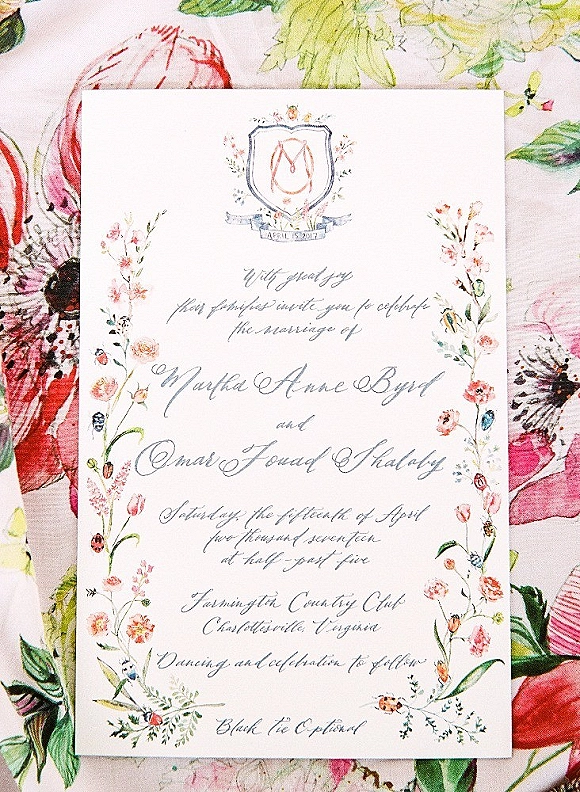 M
APRIL 15 2017
With great joy
their families invite you to celebrate
the marriage of
Martha Anne Byrd
and
Omar Fouad Shalaby
Saturday, the fifteenth of April
two thousand seventeen
at half-past five
Farmington Country Club
Charlottesville, Virginia
Dancing and celebration to follow
Black tie Optional